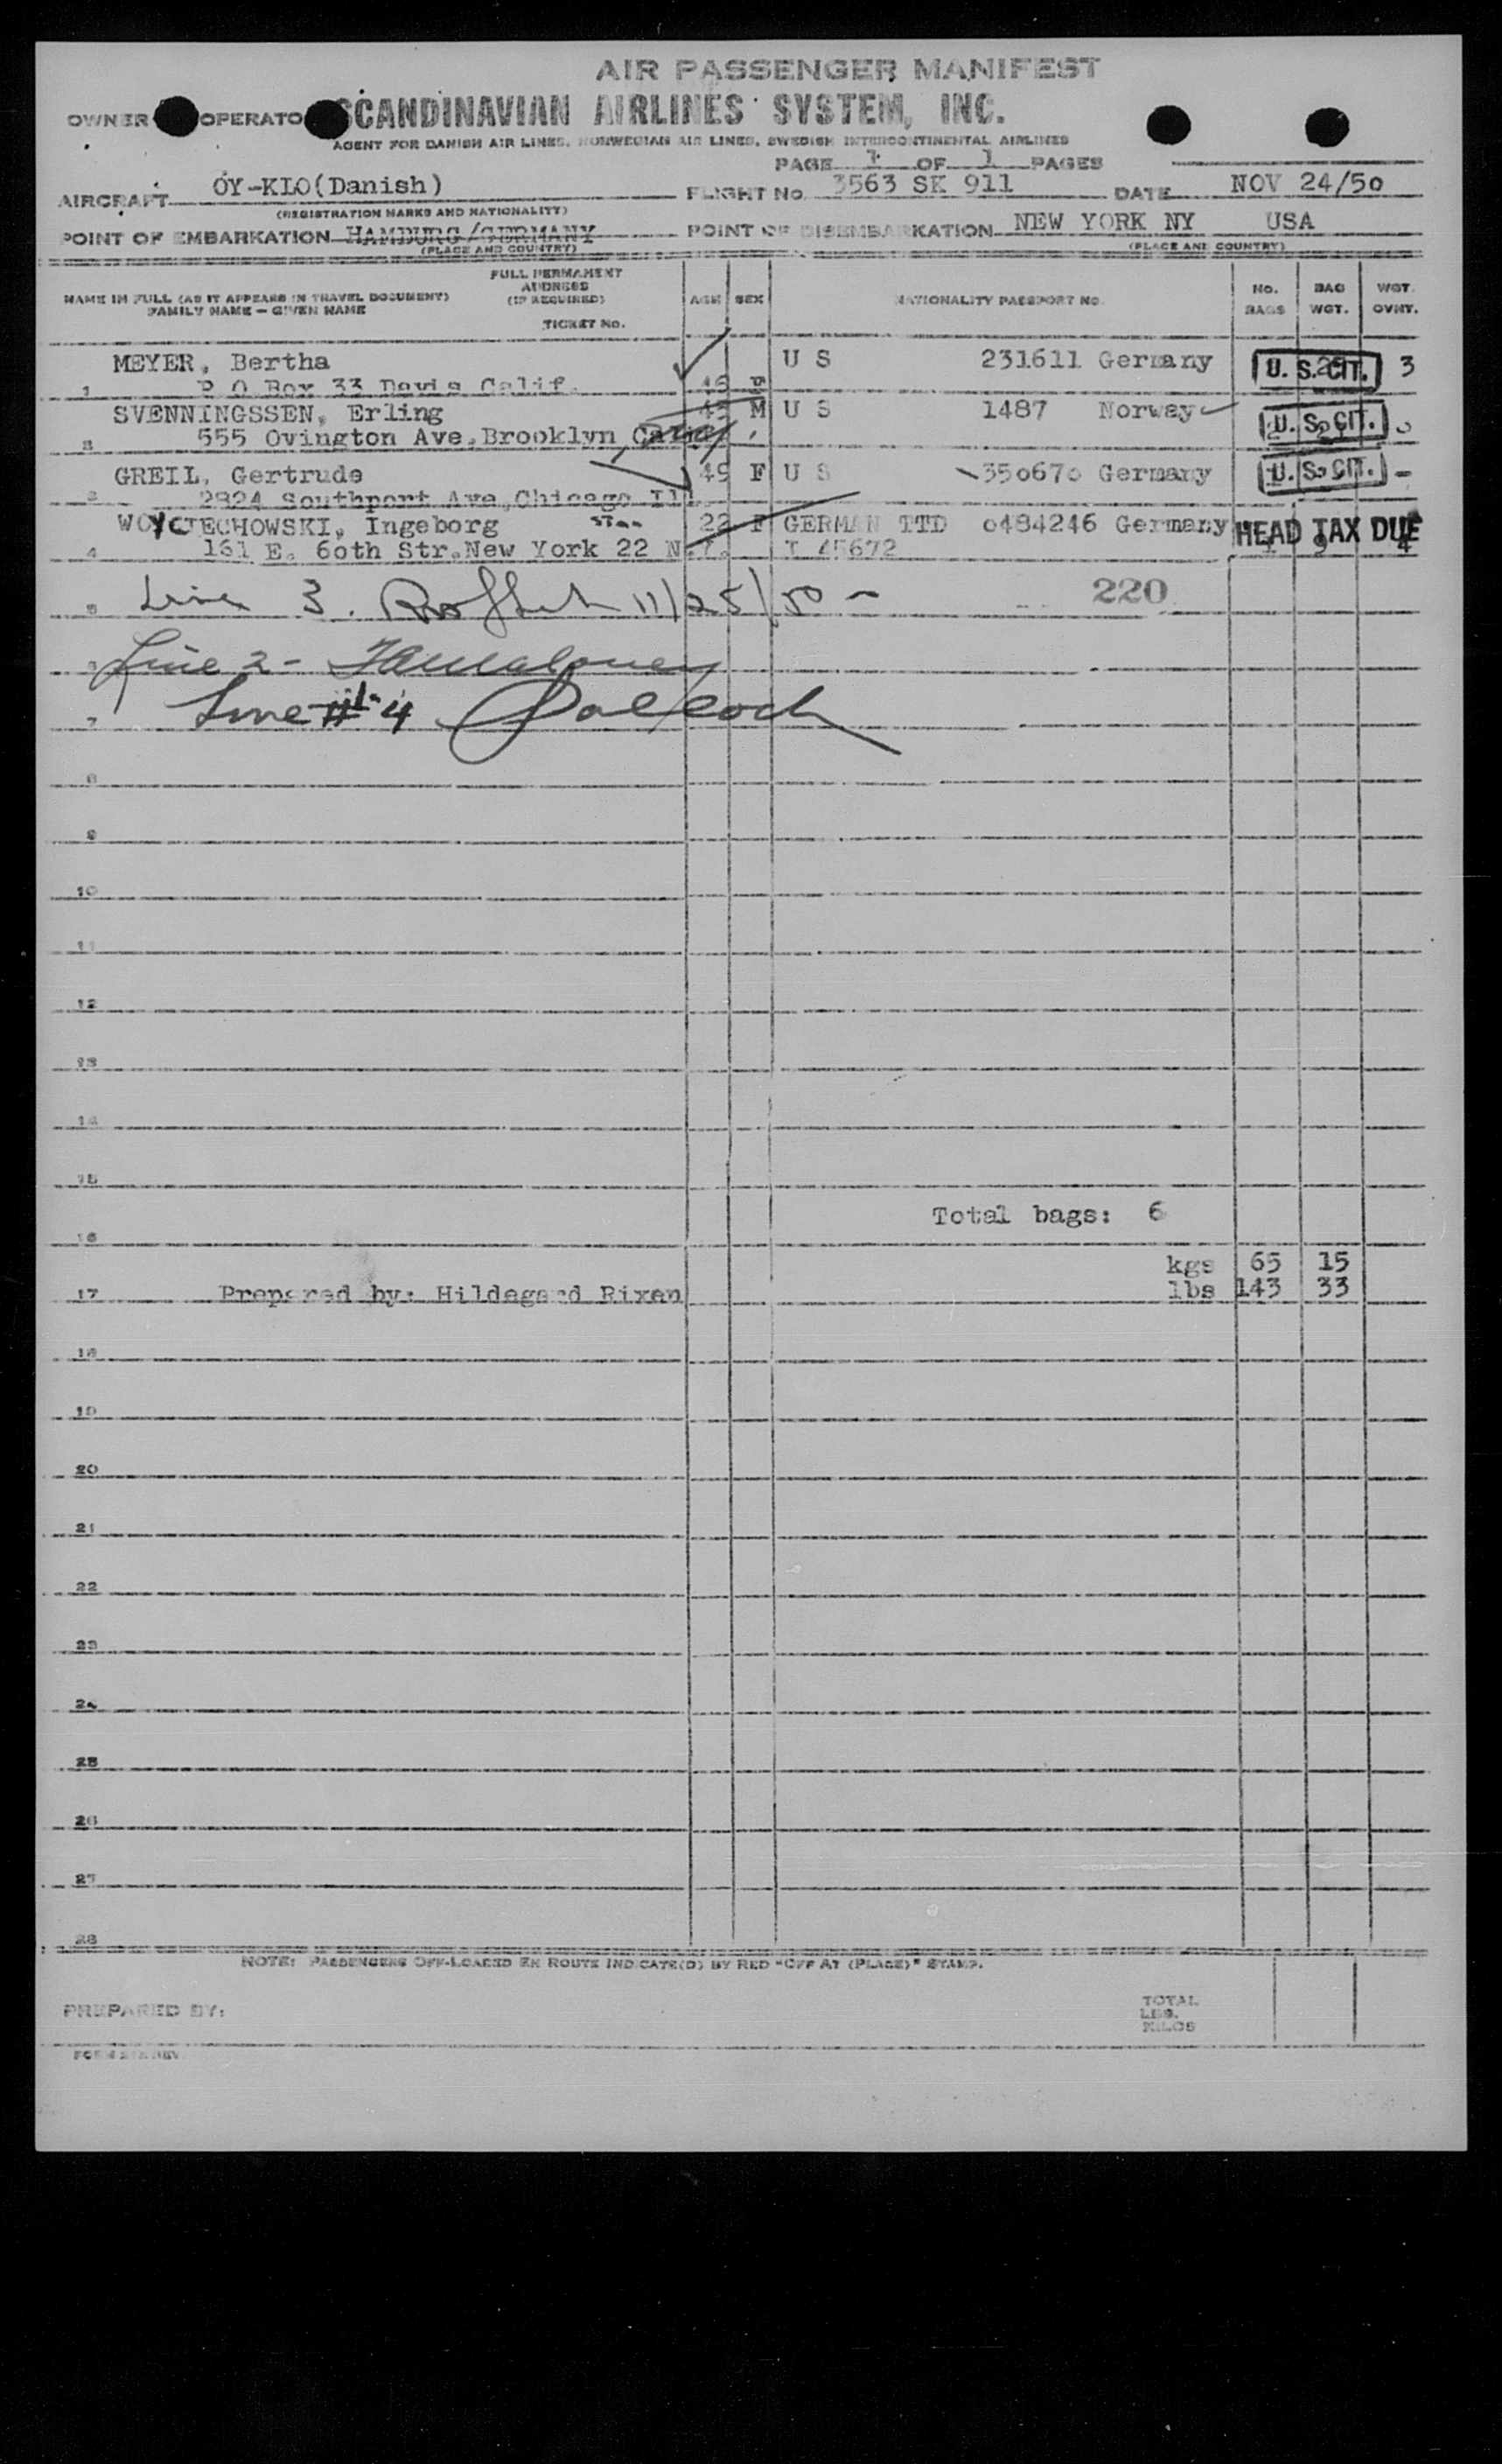 AIR PASSENGER MANIFEST
OWNER OPERATO SCANDINAVIAN AIRLINES SYSTEM, INC.
AGENT FOR DANISH AIR LINES, NORWEGIAN AIR LINES, SWEDISH INTERCONTINENTAL AIRLINES
PAGE 1 OF 1 PAGES
AIRCRAFT OY-KLO(Danish) FLIGHT No. 3563 SK 911 DATE NOV 24/50
(REGISTRATION MARKS AND NATIONALITY)
POINT OF EMBARKATION HAMBURG/GERMANY POINT OF DISEMBARKATION NEW YORK NY USA
(PLACE AND COUNTRY) (PLACE AND COUNTRY)
NAME IN FULL (AS IT APPEARS IN TRAVEL DOCUMENT) FAMILY NAME — GIVEN NAME
FULL PERMANENT ADDRESS (IF REQUIRED) TICKET No.
AGE SEX NATIONALITY PASSPORT NO. No. BAGS BAG WGT. WGT. OVHT.
MEYER, Bertha U S 231611 Germany U. S. CIT. 3
1 P O Box 33 Davis Calif. F
SVENNINGSSEN, Erling M U S 1487 Norway U. S. CIT.
2 555 Ovington Ave.Brooklyn
GREIL, Gertrude 49 F U S 350670 Germany U. S. CIT. -
3 2924 Southport Ave,Chicago Ill
WOYCIECHOWSKI, Ingeborg 22 F GERMAN TTD 0484246 Germany HEAD TAX DUE
4 161 E. 60th Str.New York 22 N.Y. T 45672
5 Line 3. 11/25/50 - 220
6 Line 2 -
7 Line #4
8
9
10
11
12
13
14
15
Total bags: 6
16
kgs 65 15
17 Prepared by: Hildegard Rixen lbs 143 33
18
19
20
21
22
23
24
25
26
27
28
NOTE: PASSENGERS OFF-LOADED EN ROUTE INDICATE(D) BY RED "OFF AT (PLACE)" STAMP.
PREPARED BY: TOTAL
LBS.
KILOS